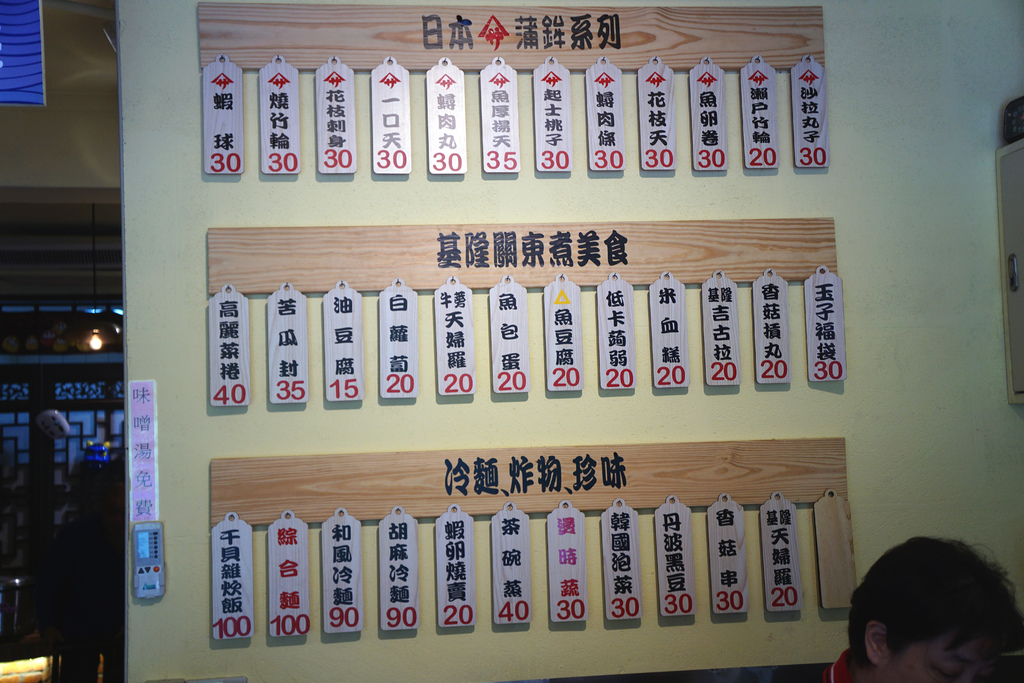 日本蒲鉾系列
蝦球 30
燒竹輪 30
花枝刺身 30
一口天 30
蟳肉丸 30
魚厚揚天 35
起士桃子 30
蟳肉條 30
花枝天 30
魚卵卷 30
瀨戶竹輪 20
沙拉丸子 30
基隆關東煮美食
高麗菜捲 40
苦瓜封 35
油豆腐 15
白蘿蔔 20
牛蒡天婦羅 20
魚包蛋 20
魚豆腐 20
低卡蒟弱 20
米血糕 20
基隆吉古拉 20
香菇摃丸 20
玉子福袋 30
冷麵、炸物、珍味
干貝雜炊飯 100
綜合麵 100
和風冷麵 90
胡麻冷麵 90
蝦卵燒賣 20
茶碗蒸 40
燙時蔬 30
韓國泡菜 30
丹波黑豆 30
香菇串 30
基隆天婦羅 20
味噌湯免費